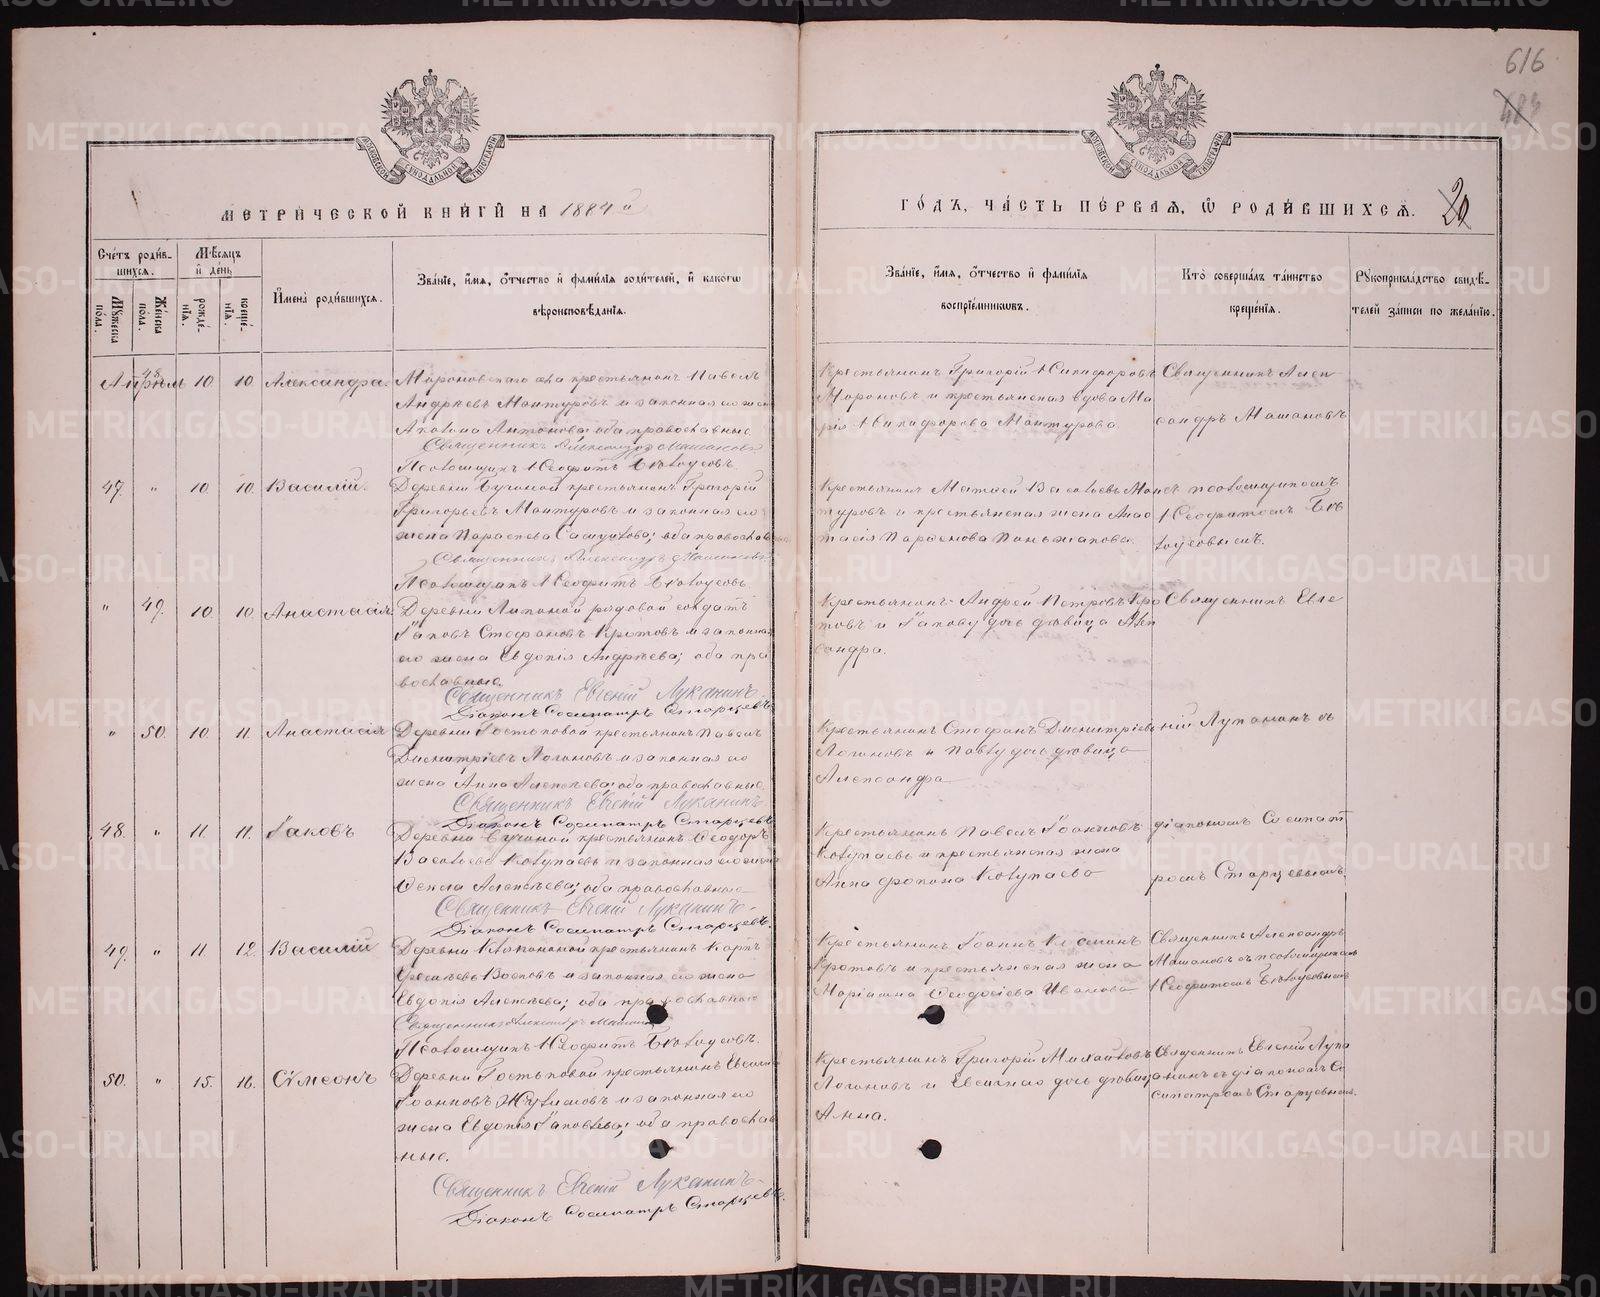 616
484
МОСКОВСКОЙ СѴНОДАЛЬНОЙ ТИПОГРАФІИ
МОСКОВСКОЙ СѴНОДАЛЬНОЙ ТИПОГРАФІИ
МЕТРИЧЕСКОЙ КНИГИ НА 1884 й
ГОДЪ, ЧАСТЬ ПЕРВАЯ, Ѿ РОДИВШИХСЯ.
20
Счетъ родив-
шихся.
Мѣсяцъ
и день
Мужеска пола.
Женска пола.
рожде-
нія.
креще-
нія.
Имена родившихся.
Званіе, имя, отчество и фамилія родителей, и какогω
вѣроисповѣданія.
Званіе, имя, отчество и фамилія
воспріемниковъ.
Кто совершалъ таинство
крещенія.
Рукоприкладство свидѣ-
телей записи по желанію.
Апрѣль 48. 10. 10. Александра.
Мироновскаго села крестьянинъ Павелъ
Андреевъ Мантуровъ и законная его жена
Антонова; оба православные.
Священникъ Александръ Машановъ
Псаломщикъ Неофитъ Бѣлоусовъ.
Крестьянинъ Григорій Никифоровъ
Мироновъ и крестьянская вдова Ма
рія Никифорова Мантурова.
Священникъ Алек
сандръ Машановъ
49. " 10. 10. Василій.
Деревни Бучиной крестьянинъ Григорій
Григорьевъ Мантуровъ и законная его
жена Параскева; оба православные
Священникъ Александръ Машановъ
Псаломщикъ Неофитъ Бѣлоусовъ
Крестьянинъ Матвей Васильевъ Ман
туровъ и крестьянская жена Анас
тасія Парфенова Паньшакова.
съ псаломщикомъ
Неофитомъ Бѣ
лоусовымъ.
" 49. 10. 10. Анастасія
Деревни Липиной рядовой солдатъ
Іаковъ Стефановъ Кротовъ и законная
его жена Евдокія Андреева; оба пра
вославные.
Священникъ Евгеній Луканинъ.
Діаконъ Сосипатръ Старцевъ
Крестьянинъ Андрей Петровъ Кро
товъ и Іакову дочь дѣвица Алек
сандра.
Священникъ Евге
" 50. 10. 11. Анастасія
Деревни Гостьковой крестьянинъ Павелъ
Димитріевъ Логиновъ и законная его
жена Анна Алексѣева; оба православные.
Священникъ Евгеній Луканинъ.
Діаконъ Сосипатръ Старцевъ
Крестьянинъ Стефанъ Димитріевъ
Логиновъ и Павлу дочь дѣвица
Александра
ній Луканинъ съ
48. " 11. 11. Іаковъ
Деревни Бучиной крестьянинъ Ѳеодоръ
Васильевъ Колупаевъ и законная его жена
Ѳекла Алексѣева; оба православные
Священникъ Евгеній Луканинъ.
Діаконъ Сосипатръ Старцевъ.
Крестьянинъ Павелъ Іоанновъ
Колупаевъ и крестьянская жена
Анна Колупаева
діакономъ Сосипат
ромъ Старцевымъ.
49. " 11. 12. Василій
Деревни крестьянинъ Карпъ
и законная его жена
Евдокія Алексѣева; оба православные
Священникъ Александръ Машановъ
Псаломщикъ Неофитъ Бѣлоусовъ.
Крестьянинъ Іоаннъ Косминъ
Кротовъ и крестьянская жена
Маріамна Ѳеодосіева Иванова
Священникъ Александръ
Машановъ съ псаломщикомъ
Неофитомъ Бѣлоусовымъ
50. " 15. 16. Сѵмеонъ
Деревни Гостьковой крестьянинъ Евсигній
Іоанновъ и законная его
жена Евдокія Іаковлева; оба православ
ные.
Священникъ Евгеній Луканинъ.
Діаконъ Сосипатръ Старцевъ.
Крестьянинъ Григорій Михайловъ
Логиновъ и Евсигнію дочь дѣвица
Анна.
Священникъ Евгеній Лука
нинъ съ діакономъ Со
сипатромъ Старцевымъ.
METRIKI.GASO-URAL.RU